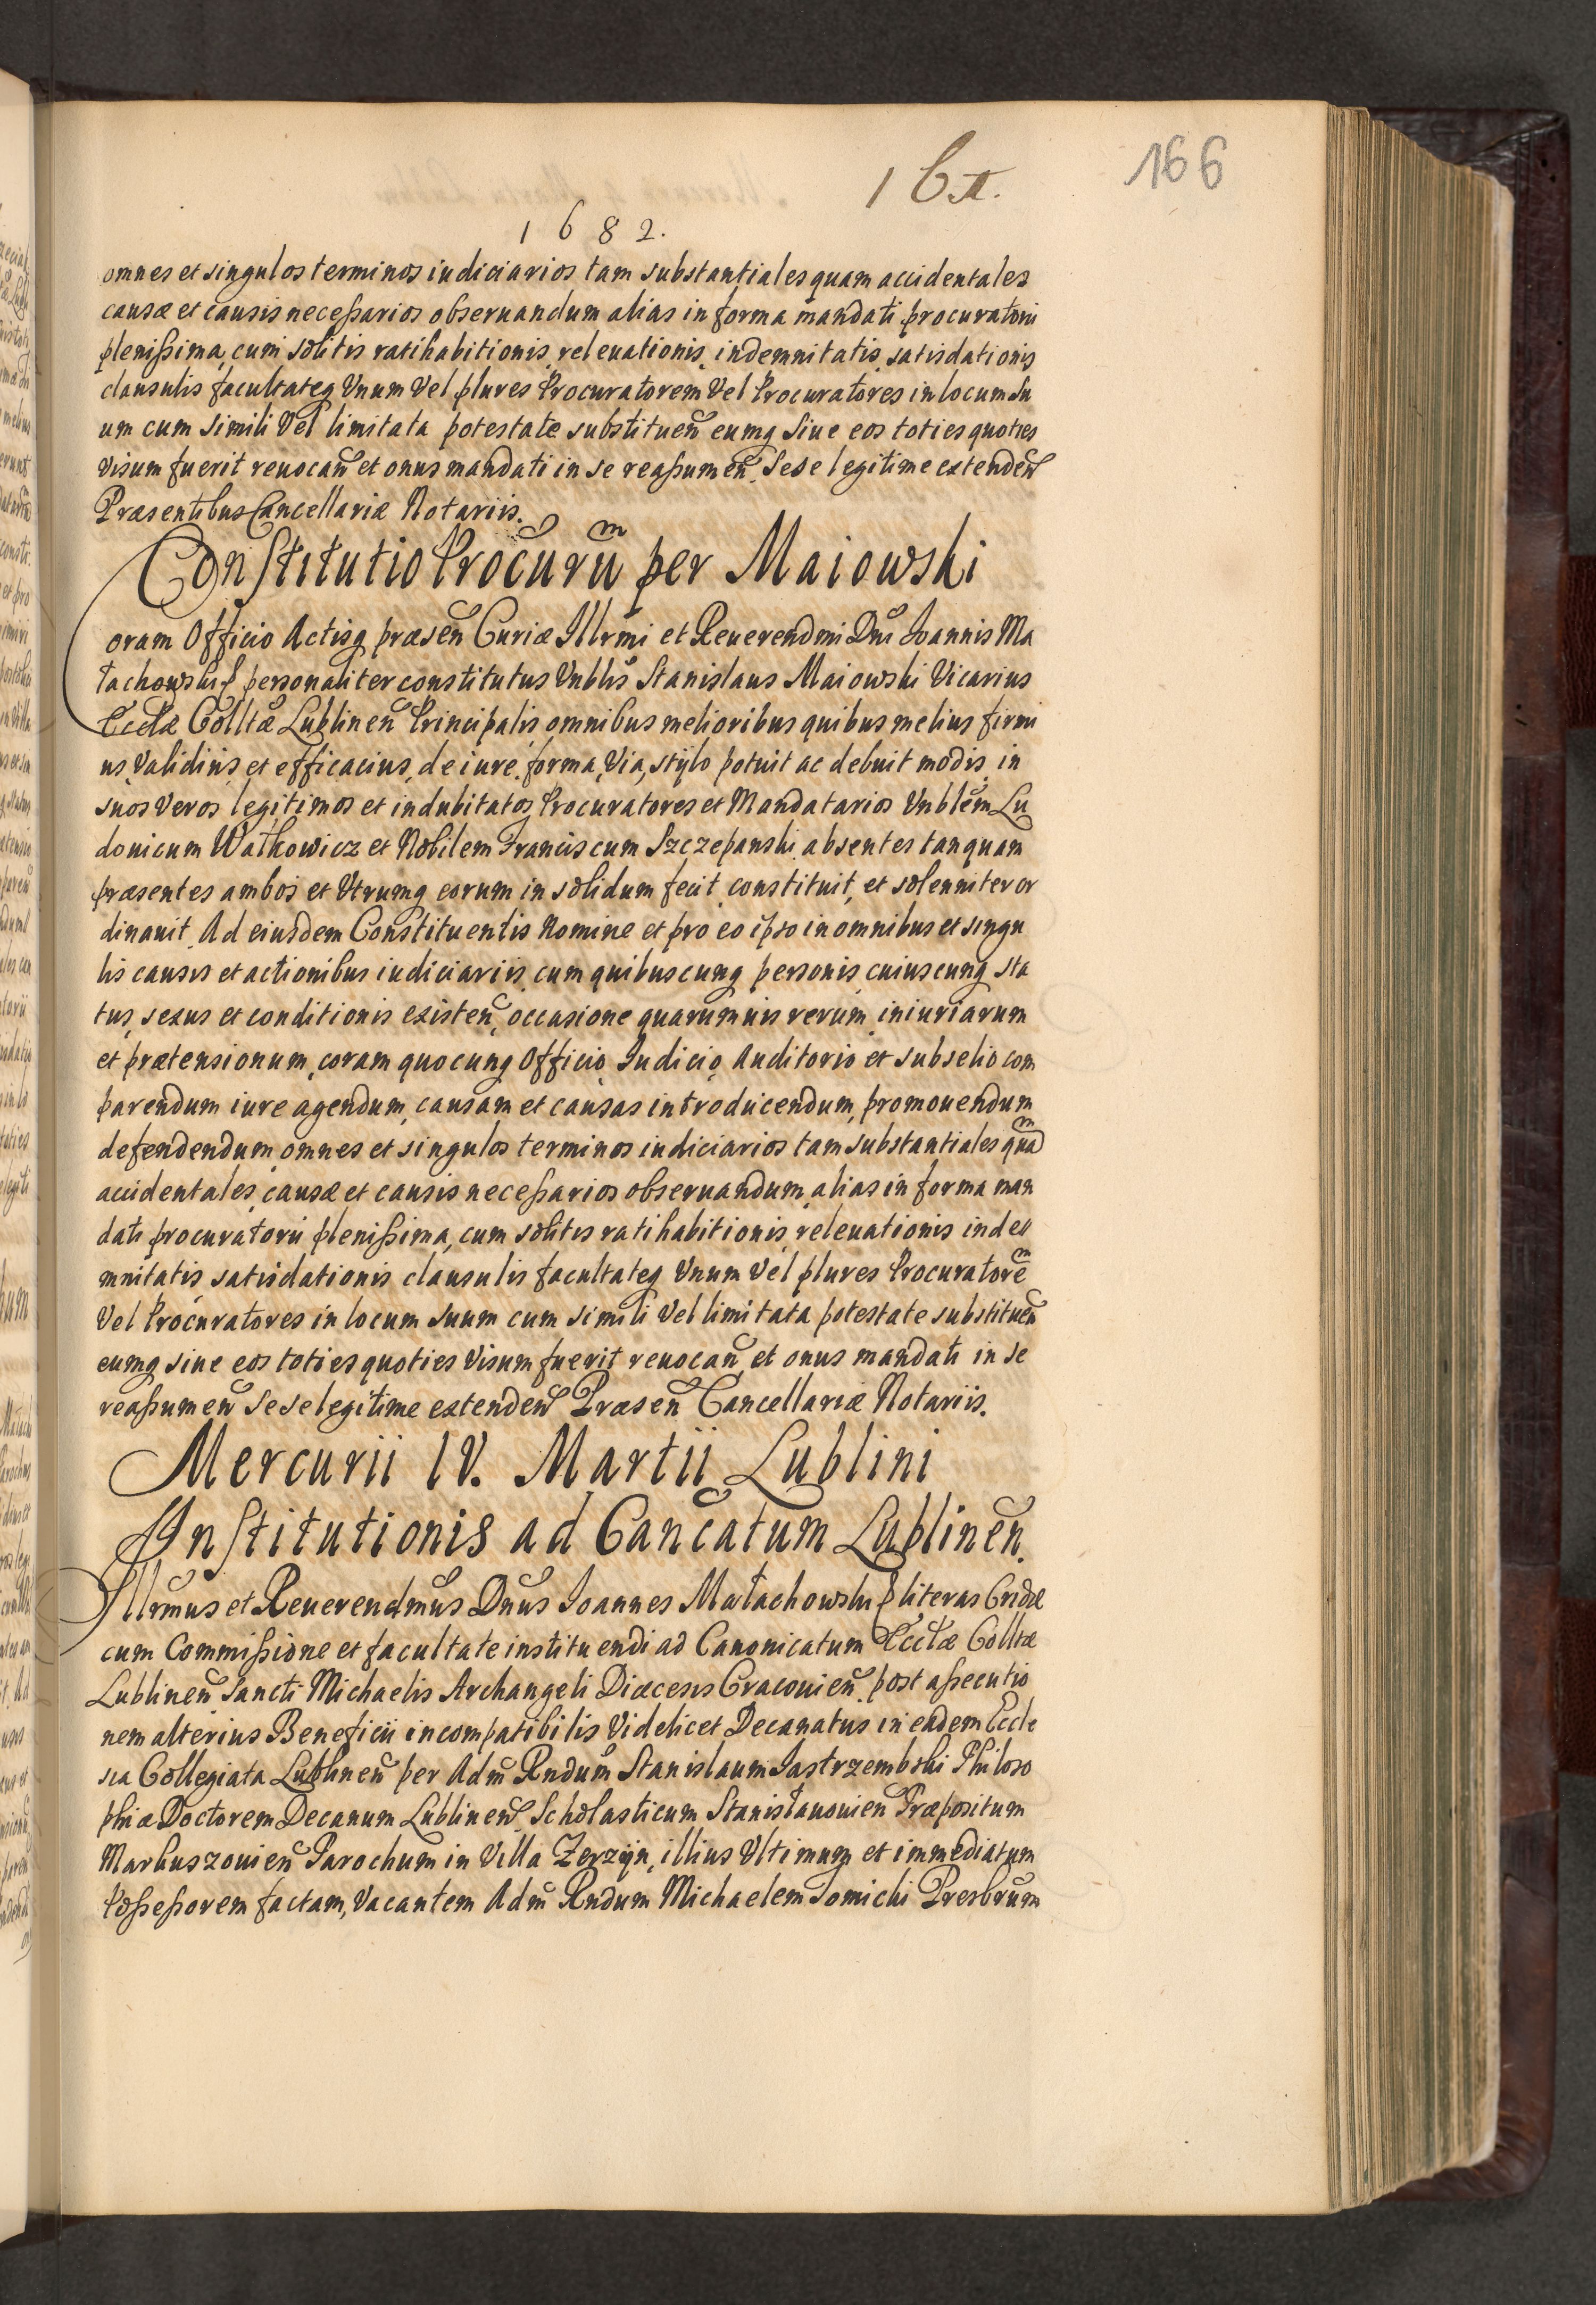 166
1682.
omnes et singulos terminos iudiciarios tam substantiales quam accidentales
causæ et causis necessarios obseruandum alias in forma mandati procuratorii
plenissima, cum solitis ratihabitionis, releuationis, indemnitatis, satisdationis
clausulis facultateq Vnum Vel plures Procuratorem Vel Procuratores in locum su
um cum simili Vel limitata potestate substitueñ eumq siue eos toties quoties
visum fuerit reuocañ et onus mandati in se reassumeñ. Sese legitime extendeñ
Præsentibus Cancellariæ Notariis.
Constitutio Procurũm per Maiowski
Coram Officio Actisq præseñ Curiæ Illrmi et Reuerendmi Dni Ioannis Ma
łachowski personaliter constitutus Vnblis Stanislaus Maiowski Vicarius
Ecclæ Colltæ Lublineñ Principalis omnibus melioribus quibus melius firmi
us, Validius, et efficacius, de iure, forma, Via, stÿlo potuit ac debuit modis, in
suos Veros, legitimos et indubitatos Procuratores et Mandatarios Vnblem Lu
douicum Wałkowicz et Nobilem Franciscum Szczepanski absentes tanquam
præsentes ambos et Vtrumq eorum in solidum fecit, constituit, et solenniter or
dinauit. Ad eiusdem Constituentis Nomine et pro eo ipso in omnibus et singu
lis causis et actionibus iudiciariis, cum quibuscunq personis, cuiuscunq sta
tus, sexus et conditionis existeñ, occasione quarumuis rerum, iniuriarum
et prætensionum, coram quocunq Officio, Iudicio, Auditorio et subselio com
parendum iure agendum, causam et causas introducendum, promouendum
defendendum, omnes et singulos terminos iudiciarios tam substantiales quam
accidentales, causæ et causis necessarios obseruandum, alias in forma man
dati procuratorii plenissima, cum solitis ratihabitionis, releuationis inde
mnitatis, satisdationis clausulis facultateq Vnum Vel plures Procuratorem
Vel Procuratores in locum suum cum simili Vel limitata potestate substitueñ
eumq siue eos toties quoties Visum fuerit reuocañ et onus mandati in se
reassumeñ Sese legitime extendeñ Præseñ Cancellariæ Notariis.
Mercurii IV. Martii Lublini
Institutionis ad Cancatum Lublineñ.
Illrmus et Reuerendmus Dnus Ioannes Małachowski literas
cum Commissione et facultate instituendi ad Canonicatum Ecclæ Colltæ
Lublineñ Sancti Michaelis Archangeli Diæcesis Cracouieñ. post assecutio
nem alterius Beneficii incompatibilis Videlicet Decanatus in eadem Eccle
sia Collegiata Lublineñ per Adm Rndum Stanislaum Iastrzembski Philoso
phiæ Doctorem Decanum Lublineñ, Scholasticum Stanisławouieñ Præpositum
Markuszouieñ Parochum in Villa Zerzÿn, illius Vltimum et immediatum
Possessorem factam, Vacantem Adm Rndum Michaelem Tomicki Presbrum